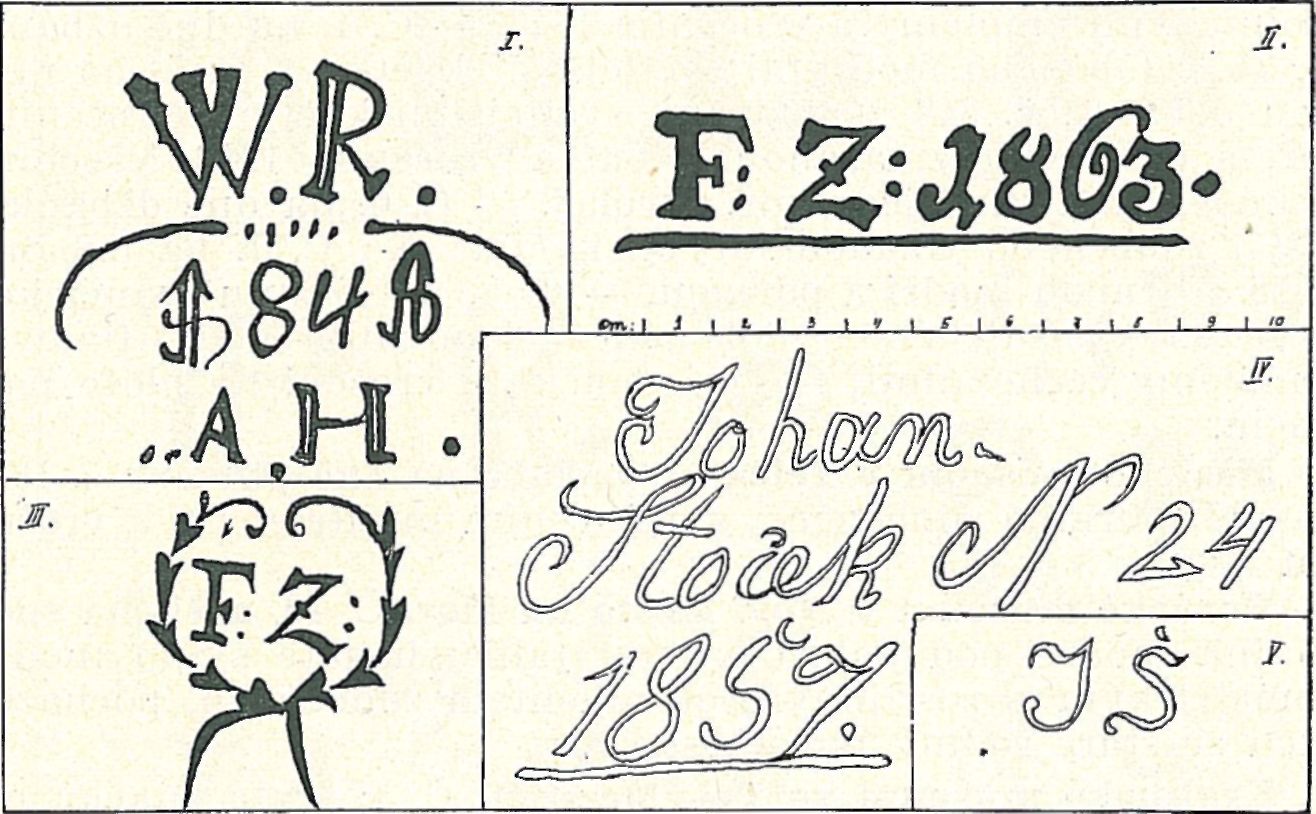 I.
W. R.
184
. . A . H .
II.
F: Z: 1863.
cm: 1 2 3 4 5 6 7 8 9 10
III.
F: Z:
IV.
Johan.
Stoček N 24
1857.
V.
J Š